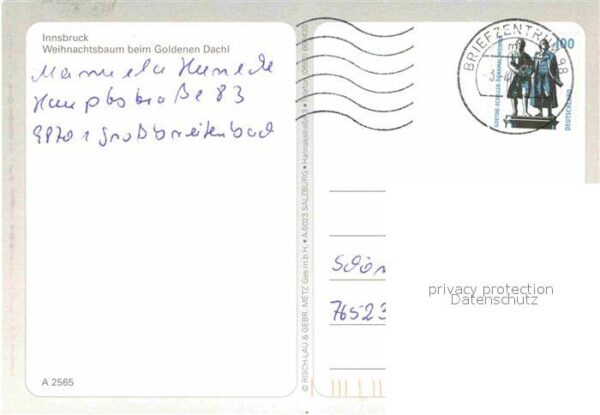 Innsbruck
Weihnachtsbaum beim Goldenen Dachl
Manuela
Hauptstraße 83
98701 Großbreitenbach
A 2565
© RISCH-LAU & GEBR. METZ Ges.m.b.H. • A-5023 SALZBURG
BRIEFZENTRUM 98
100
GOETHE-SCHILLER-DENKMAL WEIMAR
DEUTSCHLAND
Schön
76523
privacy protection
Datenschutz